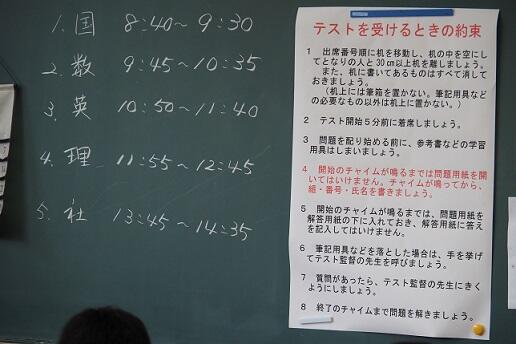 1. 国 8:40～9:30
2. 数 9:45～10:35
3. 英 10:50～11:40
4. 理 11:55～12:45
5. 社 13:45～14:35
テストを受けるときの約束
1 出席番号順に机を移動し、机の中を空にし
てとなりの人と30㎝以上机を離しましょう。
また、机に書いてあるものはすべて消して
おきましょう。
(机上には筆箱を置かない。筆記用具など
の必要なもの以外は机上に置かない。)
2 テスト開始5分前に着席しましょう。
3 問題を配り始める前に、参考書などの学習
用具はしまいましょう。
4 開始のチャイムが鳴るまでは問題用紙を開
いてはいけません。チャイムが鳴ってから、
組・番号・氏名を書きましょう。
5 開始のチャイムが鳴るまでは、問題用紙を
解答用紙の下に入れておき、解答用紙に答え
を記入してはいけません。
6 筆記用具などを落とした場合は、手を挙げ
てテスト監督の先生を呼びましょう。
7 質問があったら、テスト監督の先生にきく
ようにしましょう。
8 終了のチャイムまで問題を解きましょう。